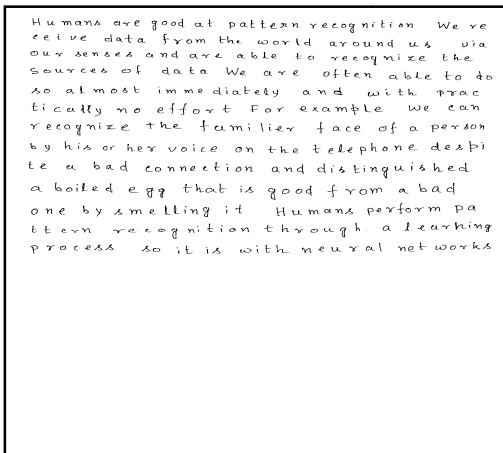 Humans are good at pattern recognition We re
ceive data from the world around us via
our senses and are able to recognize the
sources of data We are often able to do
so almost immediately and with prac
tically no effort For example we can
recognize the familier face of a person
by his or her voice on the telephone despi
te a bad connection and distinguished
a boiled egg that is good from a bad
one by smelling it Humans perform pa
ttern recognition through a learning
process so it is with neural networks